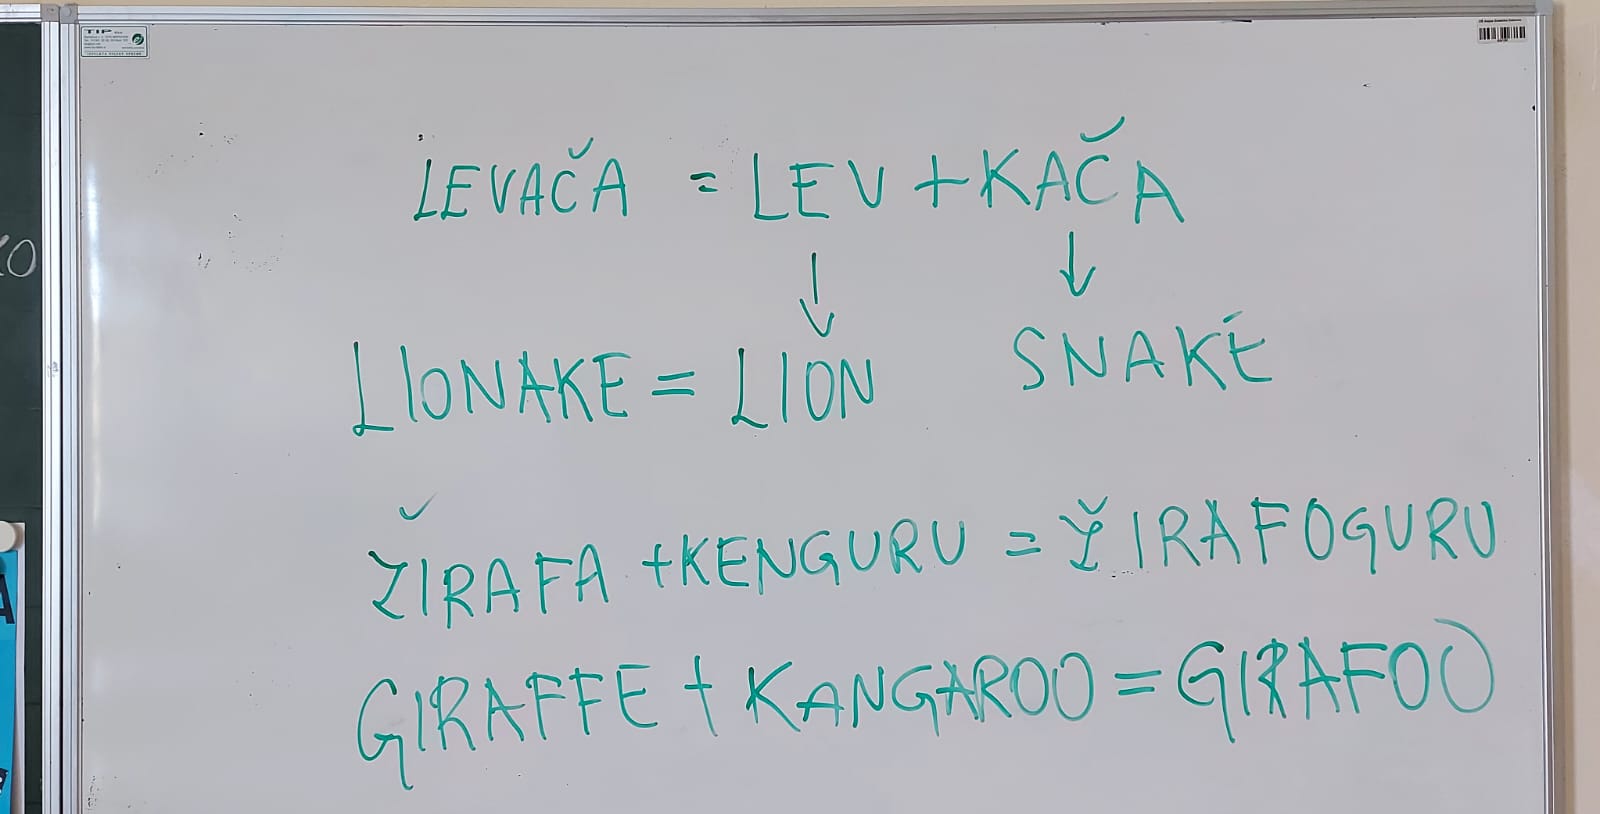 TIP
LEVAČA = LEV + KAČA
↓ ↓
LIONAKE = LION SNAKE
ŽIRAFA + KENGURU = ŽIRAFOGURU
GIRAFFE + KANGAROO = GIRAFOO